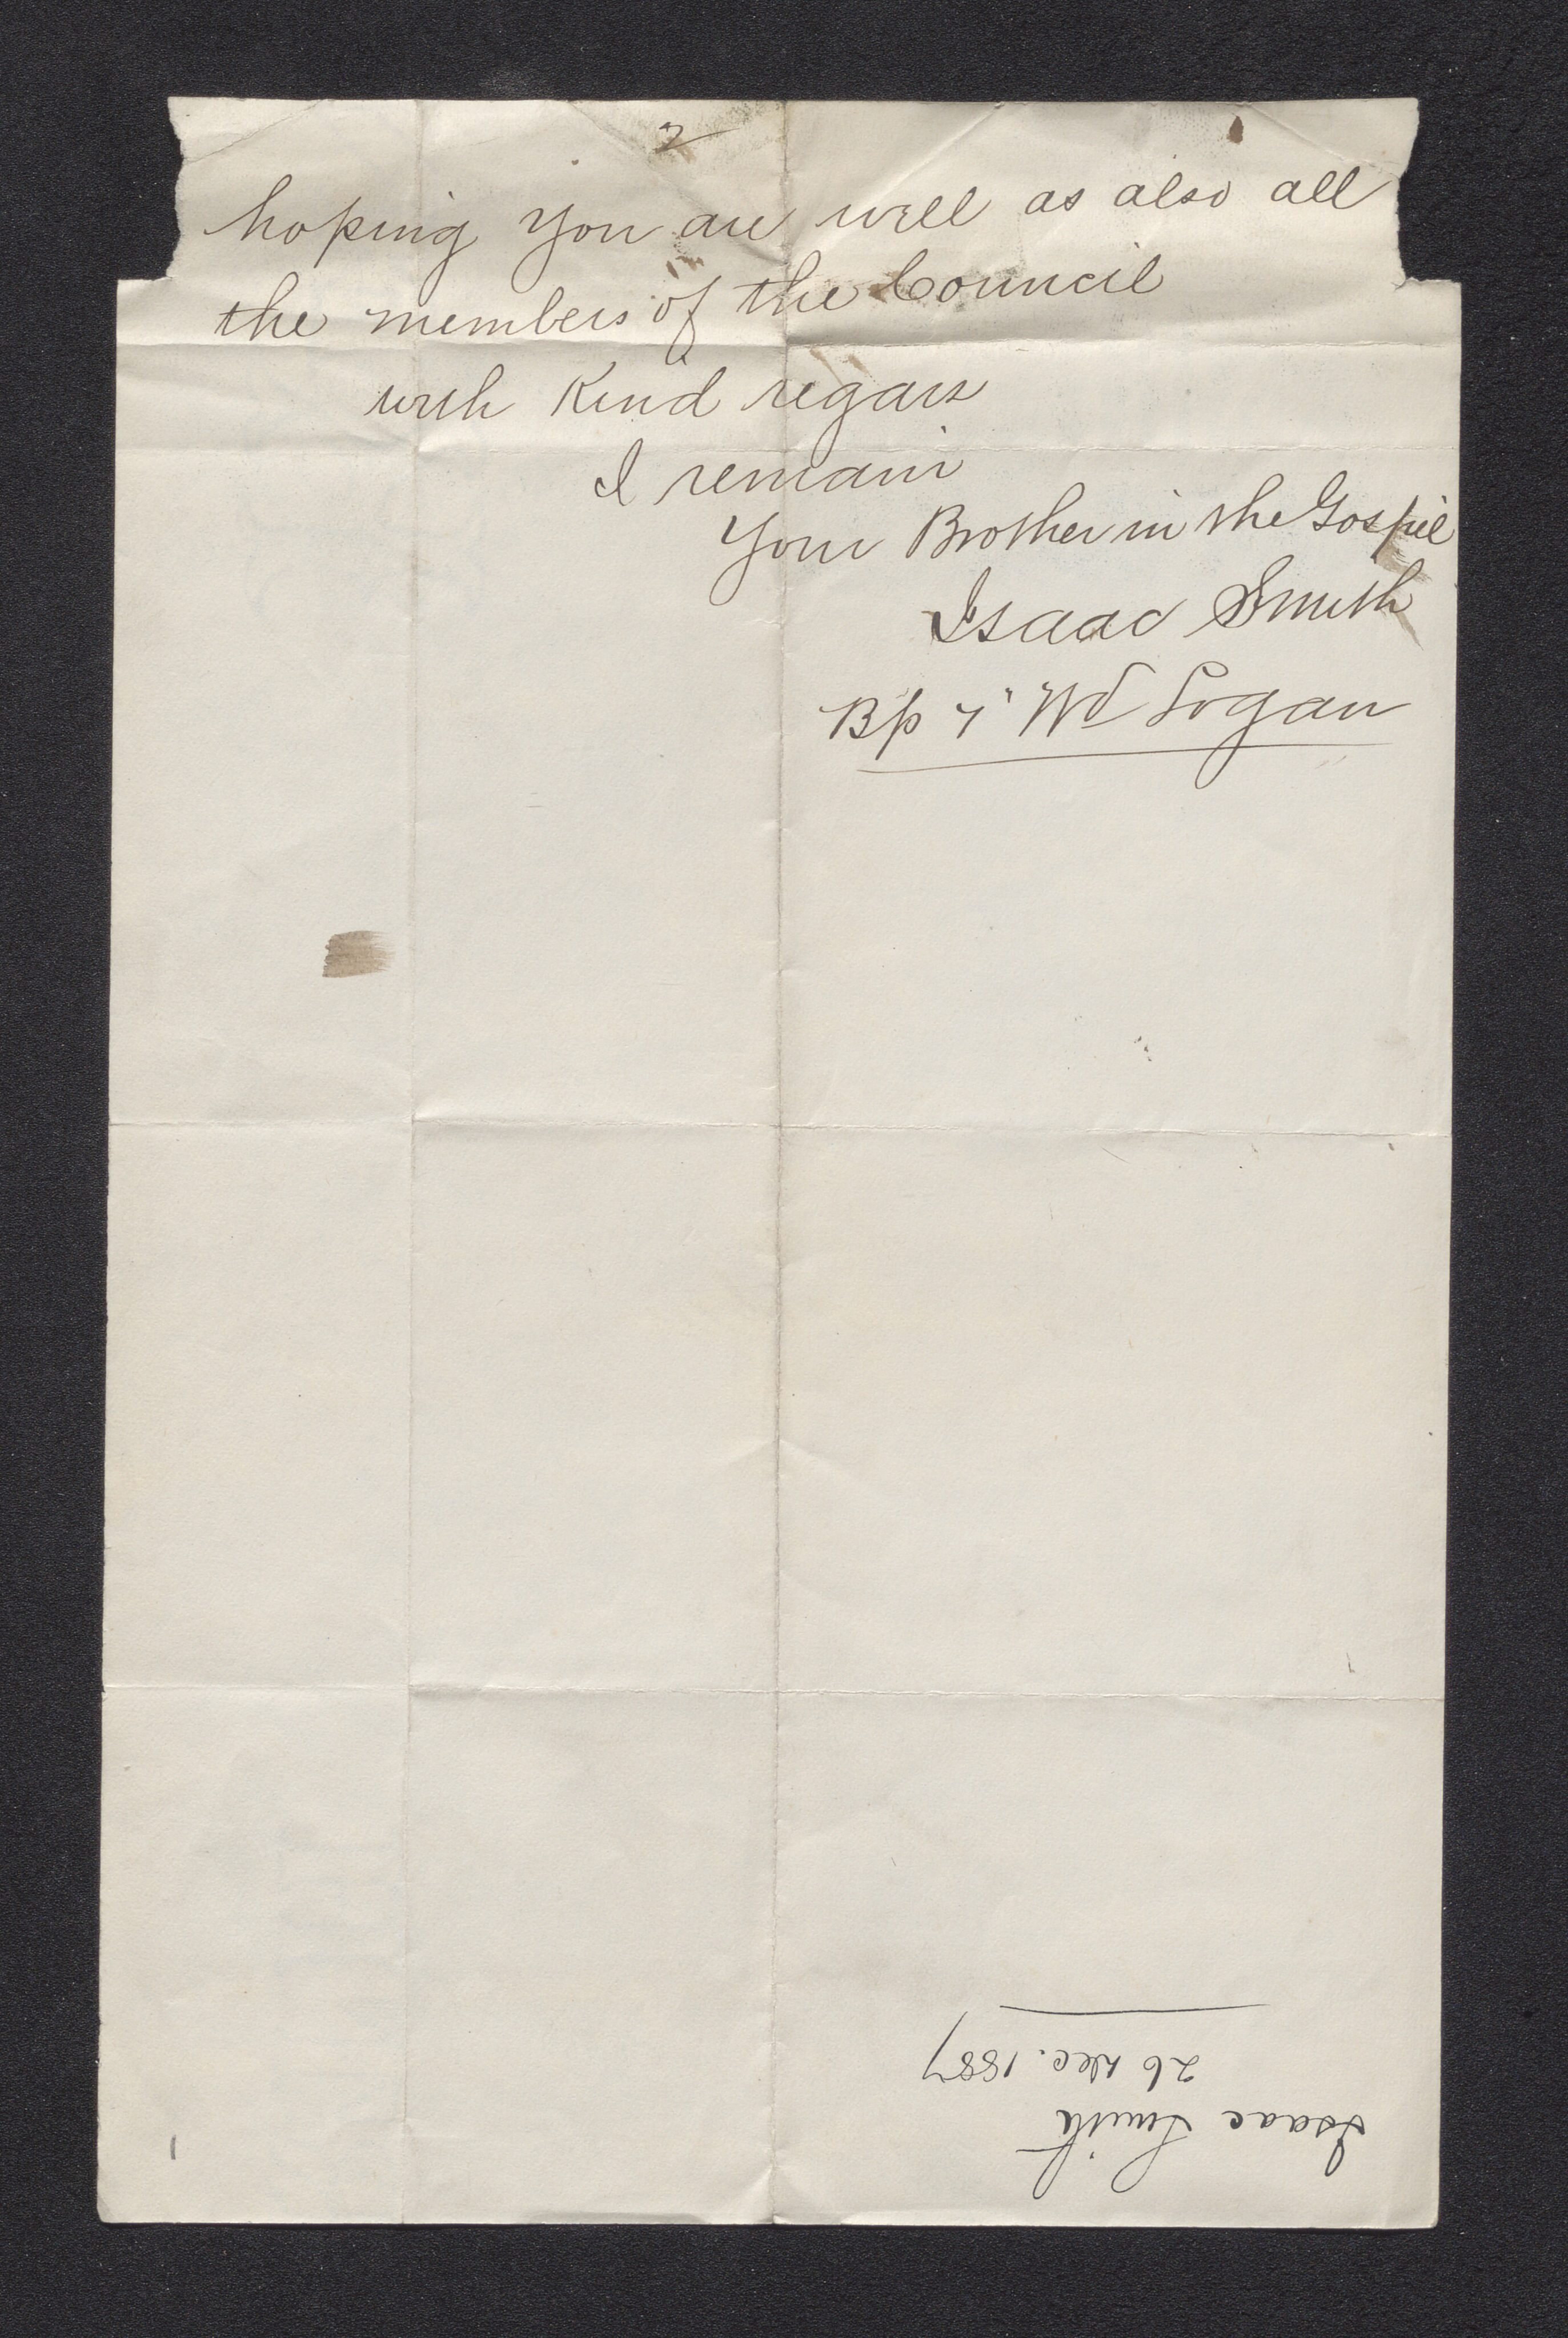 2
hoping you are well as also all
the members of the Council
with Kind regars
I remain
Your Brother in the Gospel
Isaac Smith
Bp 7" Wd Logan
Isaac Smith
26 Dec. 1887